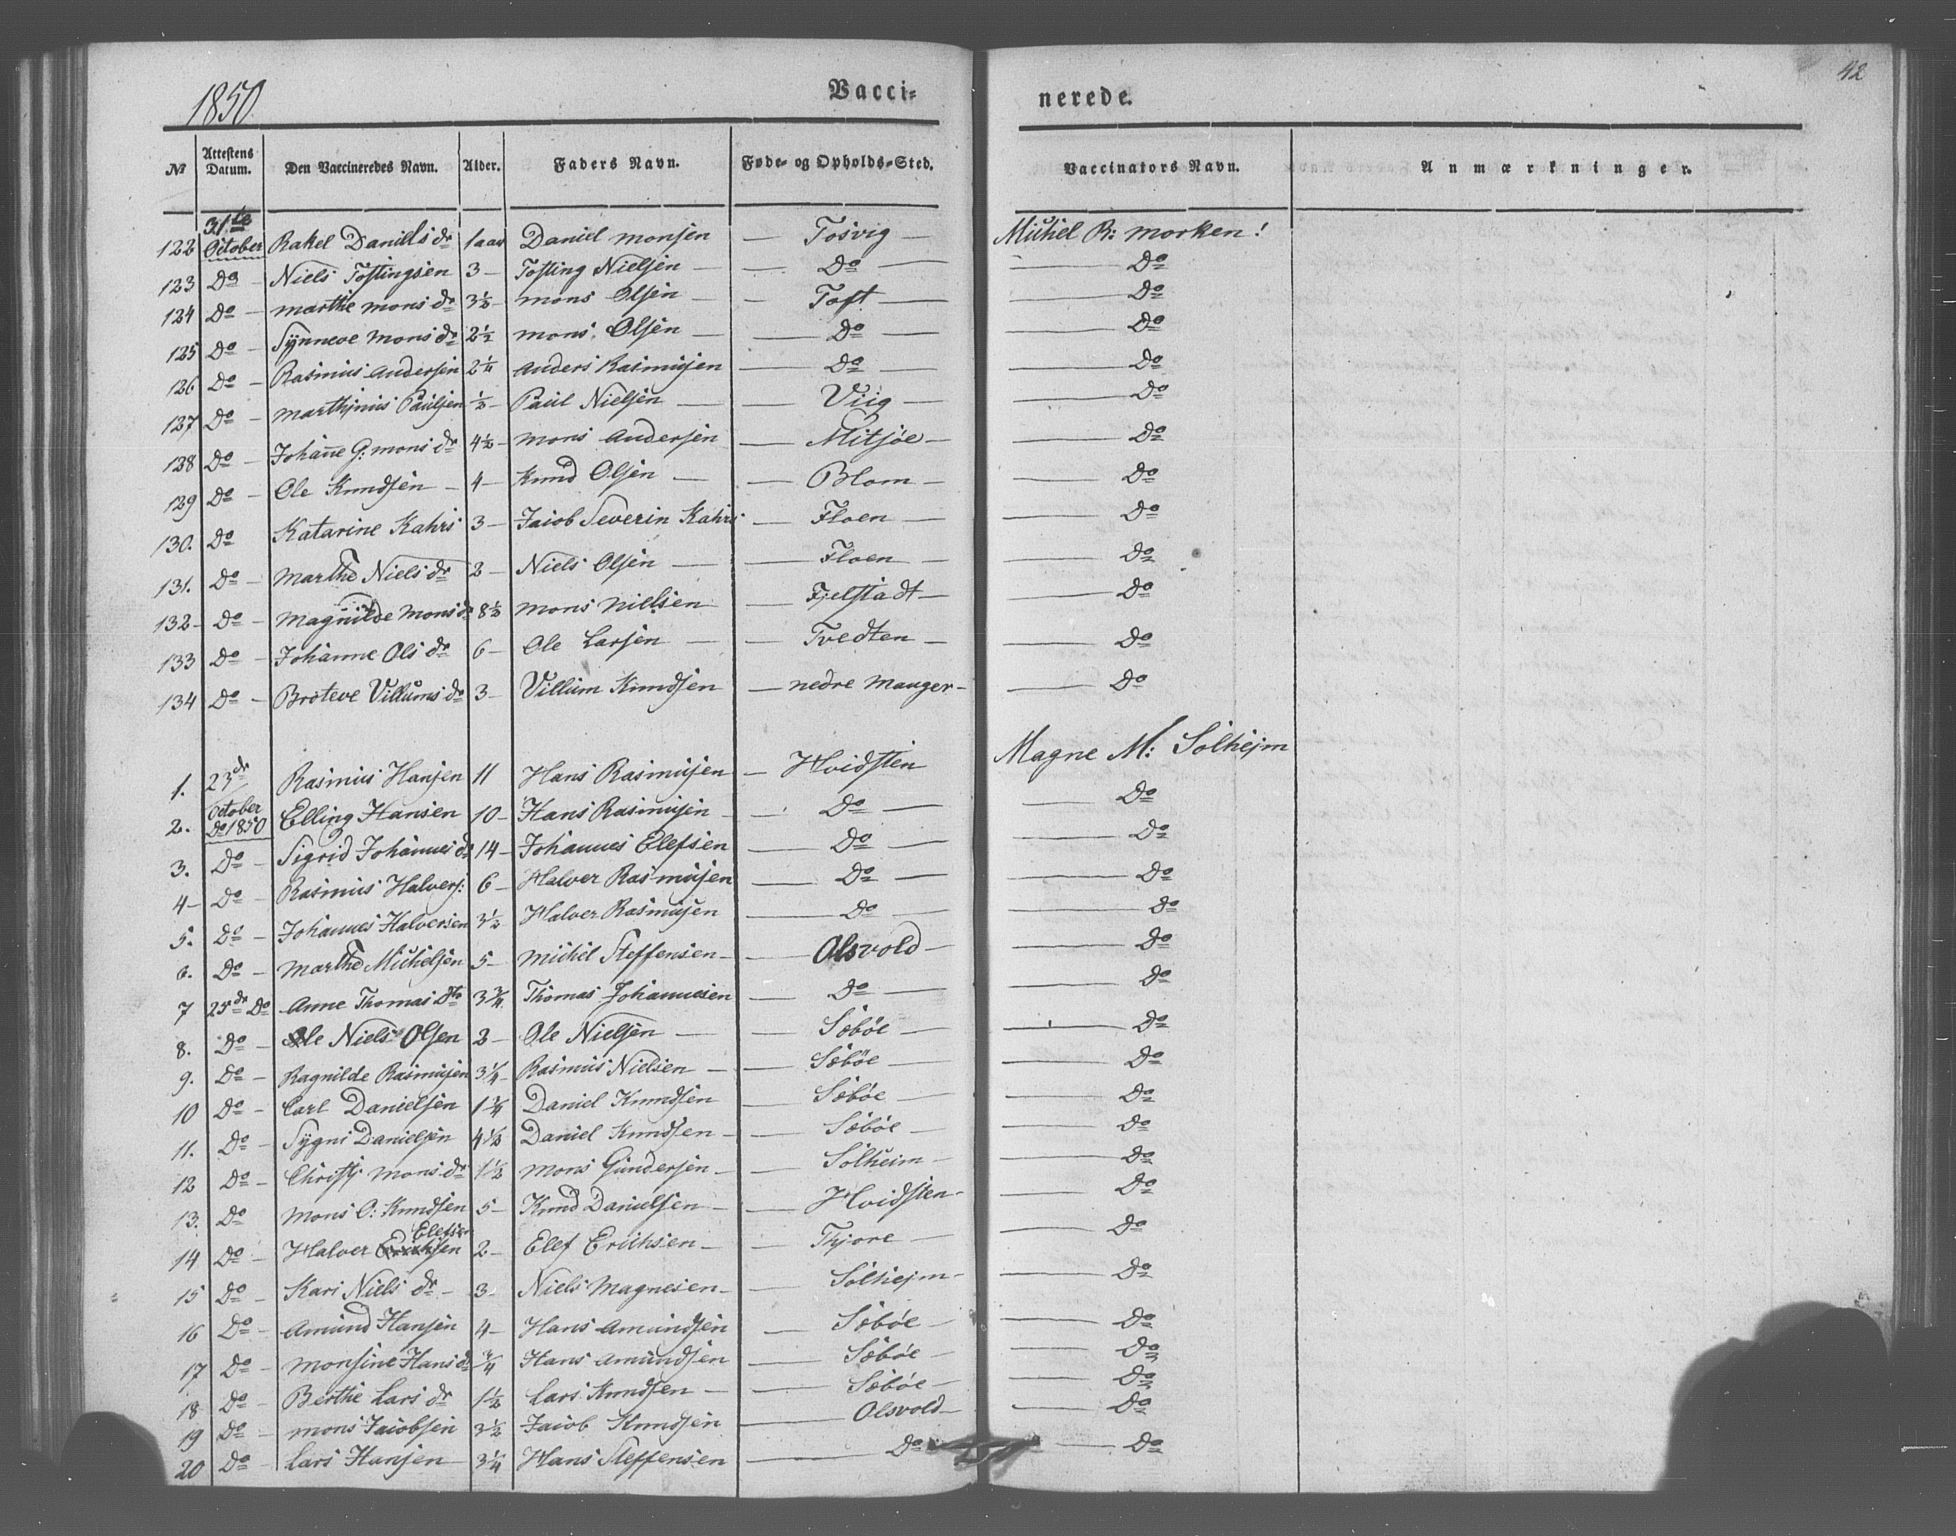 1850
Vacci-
nerede.
42
№ Attestens Datum. Den Vaccineredes Navn. Alder. Faders Navn. Føde- og Opholds-Sted. Vaccinators Navn. Anmærkninger.
122 31te October Rakel Daniels dr 1 aar Daniel Monsen — Tosvig — Michel R: Morken!
123 Do — Niels Tostingsen 3 — Tosting Nielsen — — Do — — Do
124 Do — Marthe Mons dr 3½ — Mons Olsen — — Toft — — Do
125 Do — Synneve Mons dr 2½ Mons Olsen — — Do — — Do
126 Do — Rasmus Andersen 2¼ Anders Rasmusen — Do — — Do
127 Do — Marthinus Paulsen ½ — Paul Nielsen — — Viig — — Do
128 Do — Johanne G: Mons dr 4½ — Mons Andersen — Mitsjøe — — Do
129 Do — Ole Knudsen — 4 — Knud Olsen — — Blom — — Do
130. Do Katarine Kahrs 3 — Jacob Severin Kahrs — Floen — — Do
131. Do — Marthe Niels dr 2 — Niels Olsen — — Floen — — Do
132 — Do — Magnilde Mons dr 8½ Mons Nielsen — Fjelstadt — — Do
133 Do — Johanne Ols dr 6 — Ole Larsen — — Tvedten — — Do
134 Do — Broteve Villums dr 3 — Villum Knudsen — nedre Manger — — Do
1. 23de October Rasmus Hansen 11 Hans Rasmusen — Hvidsten Magne M: Solhejm
2. Do 1850 Elling Hansen 10 — Hans Rasmusen — Do — — Do
3. Do — Sigrid Johannes dr 14 — Johannes Elefsen — Do — — Do
4 — Do — Rasmus Halvers: 6 — Halver Rasmusen — Do — — Do
5. Do — Johannes Halversen 3½ Halver Rasmusen — Do — — Do
6. Do — Marthe Michelsen 5 — Michel Steffensen — — Olsvold — — Do
7 25de Do Anne Thomas dtr 3¾ Thomas Johannesen — Do — — Do
8. Do — Ole Niels Olsen 2 — Ole Nielsen — — Sæbøe — — Do
9. Do — Ragnilde Rasmusen 3¼ — Rasmus Nielsen — — Sæbøe — — Do
10 Do — Carl Danielsen 1¾ Daniel Knudsen — Sæbøe — — Do
11. Do — Sygni Danielsen 4½ Daniel Knudsen — — Sæbøe — — Do
12 Do — Christj Mons dr 1½ Mons Gundersen — — Solheim — — Do
13. Do Mons O: Knudsen 5 — Knud Danielsen — — Hvidsten — — Do
Elefsen
14 Do — Halver Erichsen 2 — Elef Erichsen — — Thjore — — Do
15 Do — Kari Niels dr — 3 — Niels Magnesen — — Solhejm — — Do
16 Do — Amund Hansen 4 — Hans Amundsen — Sæbøe — — Do
17 Do — Monsine Hans dr ¾ Hans Amundsen — Sæbøe — — Do
18 Do — Berthe Lars dr 1½ Lars Knudsen — — Sæbøe — — Do
19 Do — Mons Jacobsen 3½ Jacob Knudsen — Olsvold — — Do
20 Do — Lars Hansen — 3¼ Hans Steffensen — Do — Do